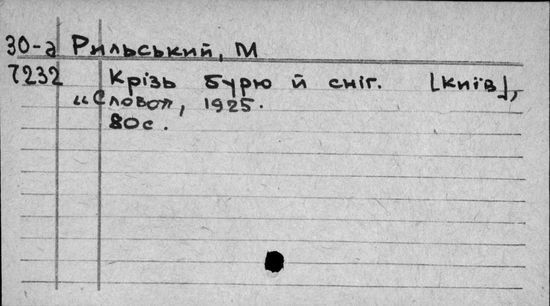 30-а Рильський, М
7232 Крізь бурю й сніг. [Київ],
„Слово", 1925.
80с.